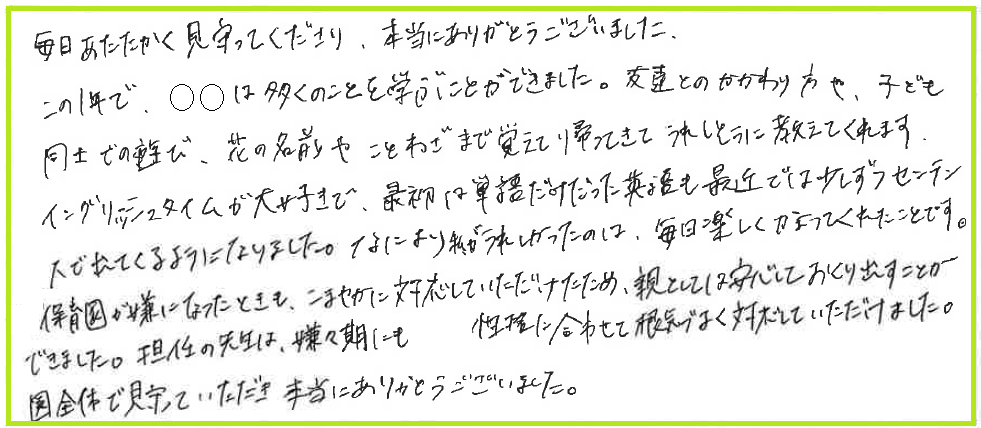 毎日あたたかく見守ってくださり、本当にありがとうございました。
この1年で、○○は多くのことを学ぶことができました。友達とのかかわり方や、子ども
同士での遊び、花の名前やことわざまで覚えて帰ってきてうれしそうに教えてくれます。
イングリッシュタイムが大好きで、最初は単語だけだった英語も最近では少しずつセンテン
スで出てくるようになりました。なにより私がうれしかったのは、毎日楽しくかよってくれたことです。
保育園が嫌になったときも、こまやかに対応していただけたため、親としては安心しておくり出すことが
できました。担任の先生は、嫌々期にも 性格に合わせて根気づよく対応していただけました。
園全体で見守っていただき本当にありがとうございました。